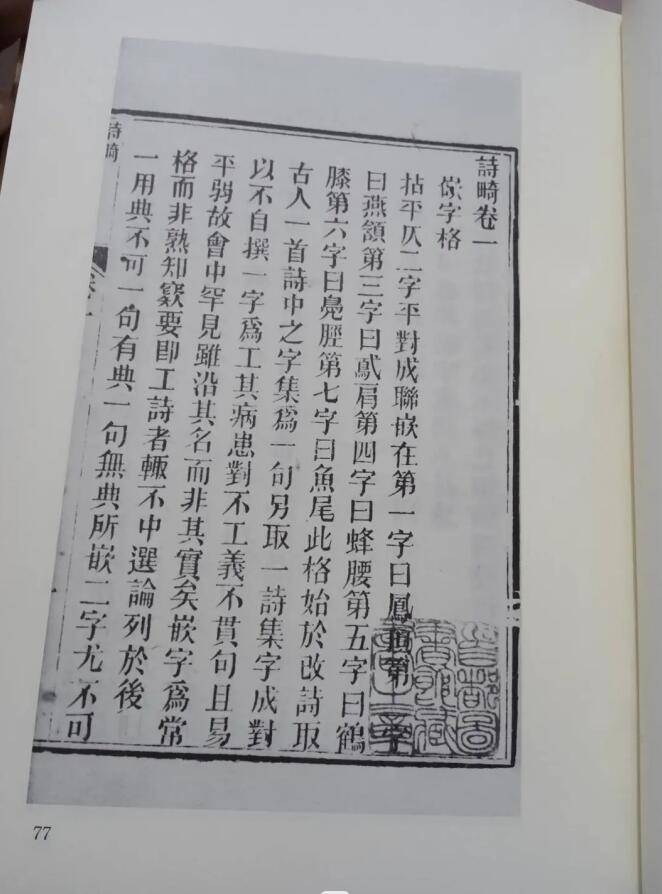 詩畸卷一
嵌字格
拈平仄二字平對成聯嵌在第一字曰鳳頂第
曰燕頷第三字曰鳶肩第四字曰蜂腰第五字曰鶴
膝第六字曰鳧脛第七字曰魚尾此格始於改詩取
古人一首詩中之字集爲一句另取一詩集字成對
以不自撰一字爲工其病患對不工義不貫句且易
平弱故會中罕見雖沿其名而非其實矣嵌字爲常
格而非熟知竅要卽工詩者輒不中選論列於後
一用典不可一句有典一句無典所嵌二字尤不可
詩畸
卷一
77